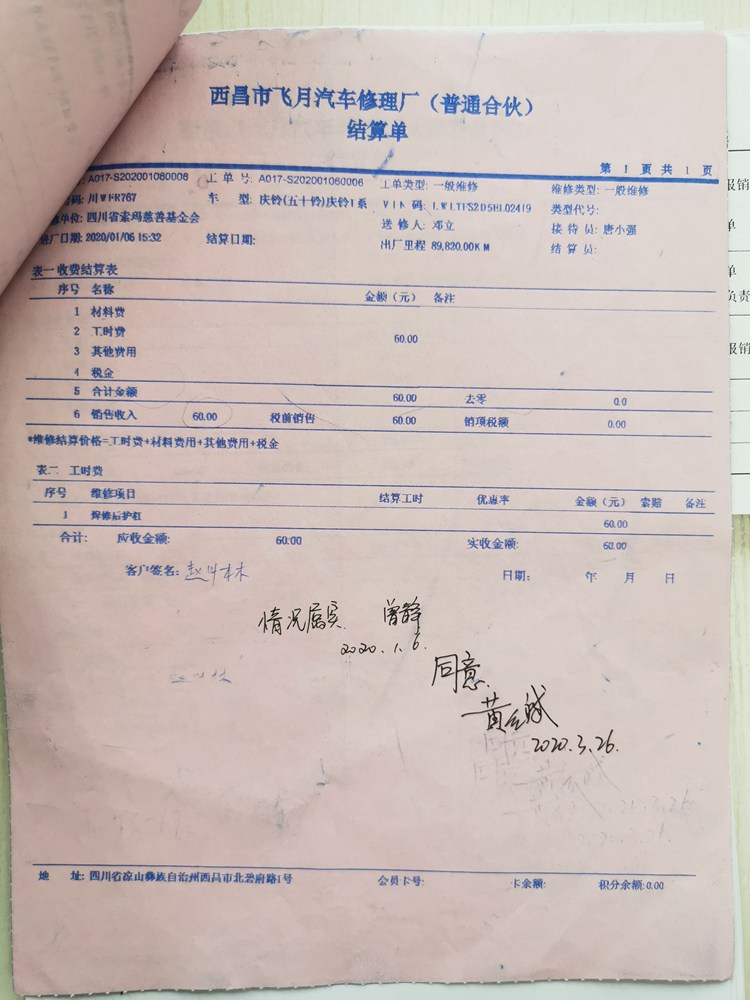 西昌市飞月汽车修理厂（普通合伙）
结算单
第 1 页 共 1 页
A017-S202001060006 工 单 号: A017-S202001060006 工单类型: 一般维修 维修类型: 一般维修
码: 川W 车 型: 庆铃(五十铃)庆铃1系 VIN 码: 类型代号:
单位: 四川省索玛慈善基金会 送 修 人: 邓立 接 待 员: 唐小强
厂日期: 2020/01/06 15:32 结算日期: 出厂里程 89,820.00KM 结 算 员:
表一收费结算表
序号 名称 金额（元） 备注
1 材料费
2 工时费 60.00
3 其他费用
4 税金
5 合计金额 60.00 去零 0.0
6 销售收入 60.00 税前销售 60.00 销项税额 0.00
*维修结算价格=工时费+材料费用+其他费用+税金
表二 工时费
序号 维修项目 结算工时 优惠率 金额（元） 索赔 备注
1 焊修后护杠 60.00
合计: 应收金额: 60.00 实收金额: 60.00
客户签名: 日期: 年 月 日
情况属实
2020.1.6.
同意
2020.3.26.
地 址: 四川省凉山彝族自治州西昌市北碧府路1号 会员卡号: 卡余额: 积分余额:0.00
报销
单
单
负责
报销